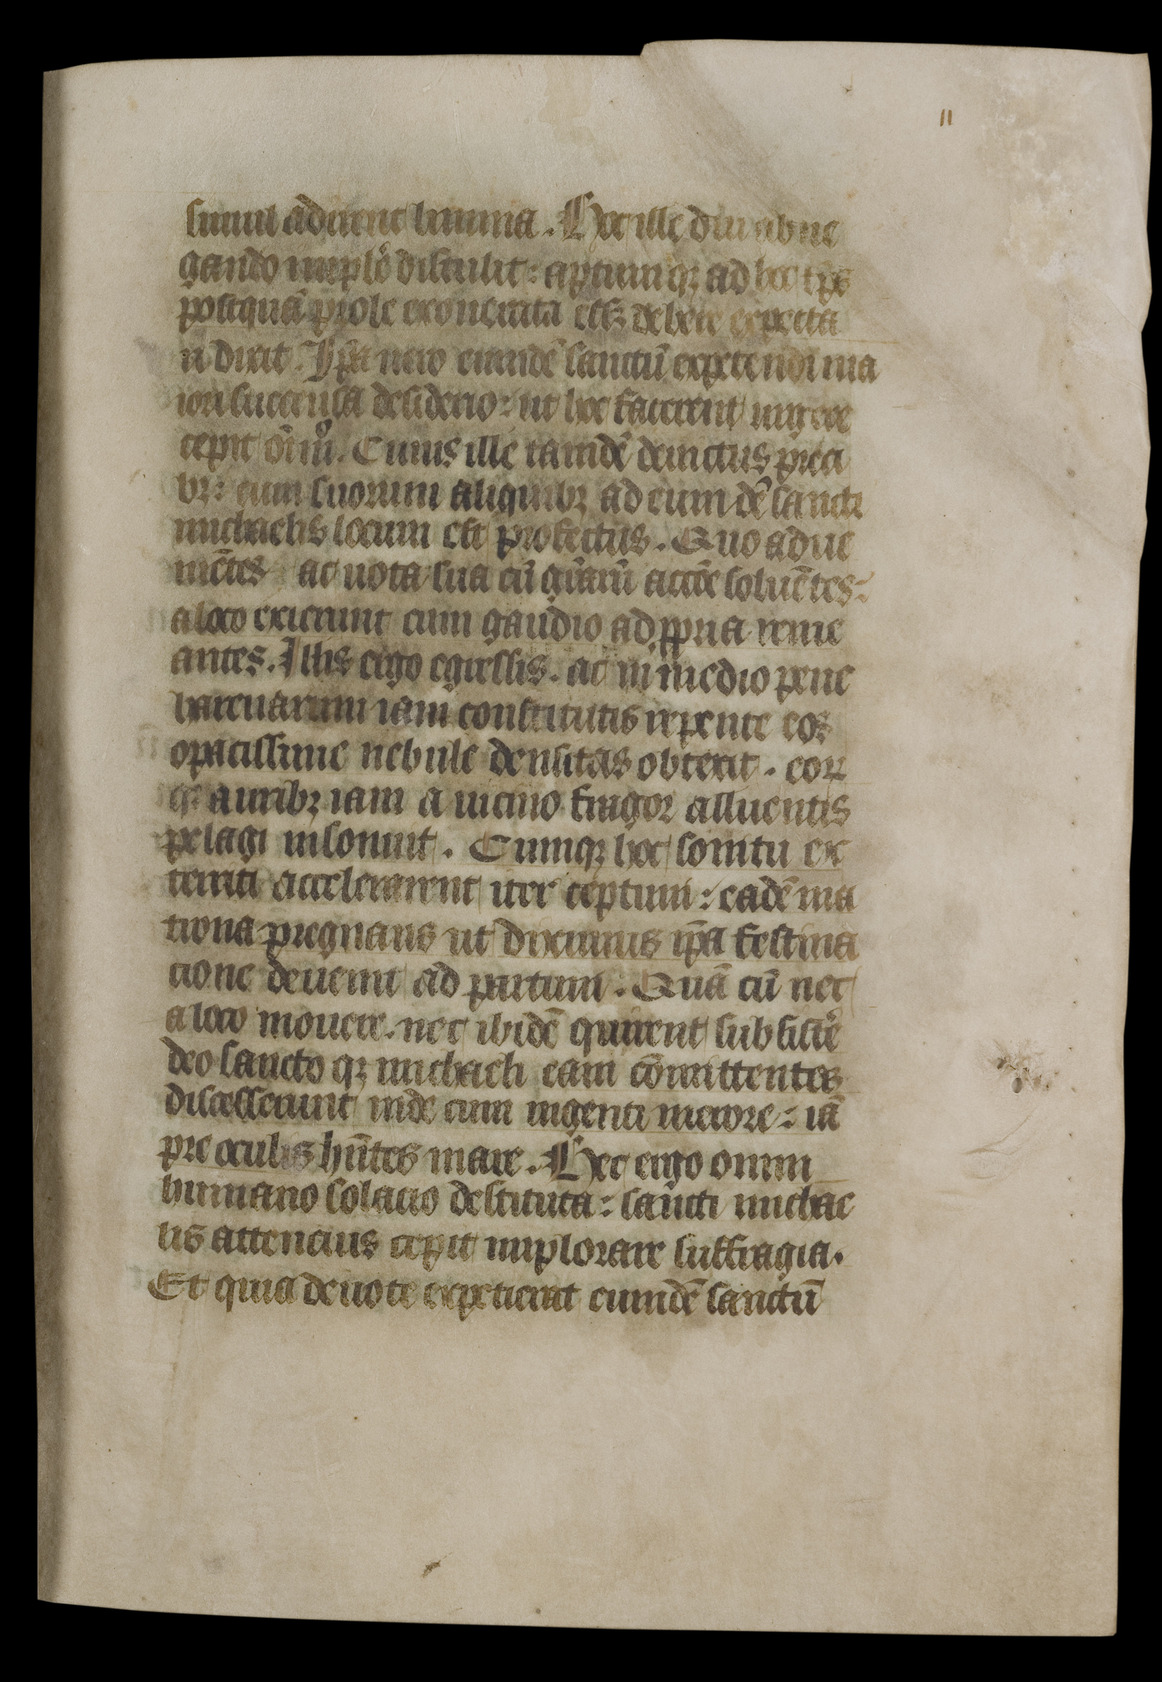 11
simul adirent limina. Hec ille diu abne
gando implẽ distulit: aptumqꝫ ad hoc tp̃s
postquã prole exonerata eēt debere expecta
ri dixit. Ip̃a uero eiundẽ sanctũ expetendi ma
iori succensa desiderio: ut hoc faceret urgere
cepit
Cuius ille tandẽ deuictus preci
bꝫ: cum suorum aliquibꝫ ad eumdẽ sancti
michaelis locum est profectus. Quo adue
niẽtes ac uota sua cũ gr̃arũ acc̃õe soluẽtes:
a loco exierunt cum gaudio ad ꝓpria reme
antes. Illis ergo egressis. ac in medio pene
harenarum iam constitutis repente eos
opacissime nebule densitas obtexit. eoꝝ
qꝫ auribꝫ iam a uicino fragor alluentis
pelagi insonuit. Cumqꝫ hoc sonitu ex
territi accelerarent iter ceptum: eadẽ ma
trona pregnans ut diximus ip̃a festina
cione deuenit ad partum. Quã cũ nec
a loco mouere. nec ibidẽ quirent subsistẽ
deo sancto qꝫ michaeli eam cõmittentes
discesserunt inde cum ingenti merore: iã
pre oculis hñtes mare. Hec ergo omni
humano solacio destituta: sancti michae
lis attencius cepit implorare suffragia.
Et quia deuote expetierat eumdẽ sanctũ